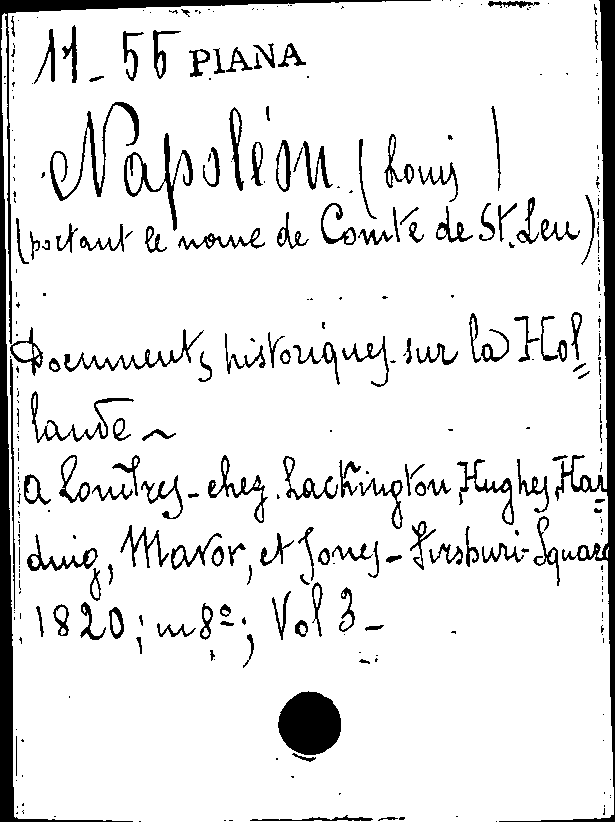 11-55 PIANA
Napoléon (Louis)
(portant le nome de Comte de St. Leu)
Documents historiques sur la Hol=
lande ~
a Londres - chez Lackington, Hughes, Har=
ding, Mavor, et Jones - Firsburi-Square
1820; in 8º; Vol 3 -